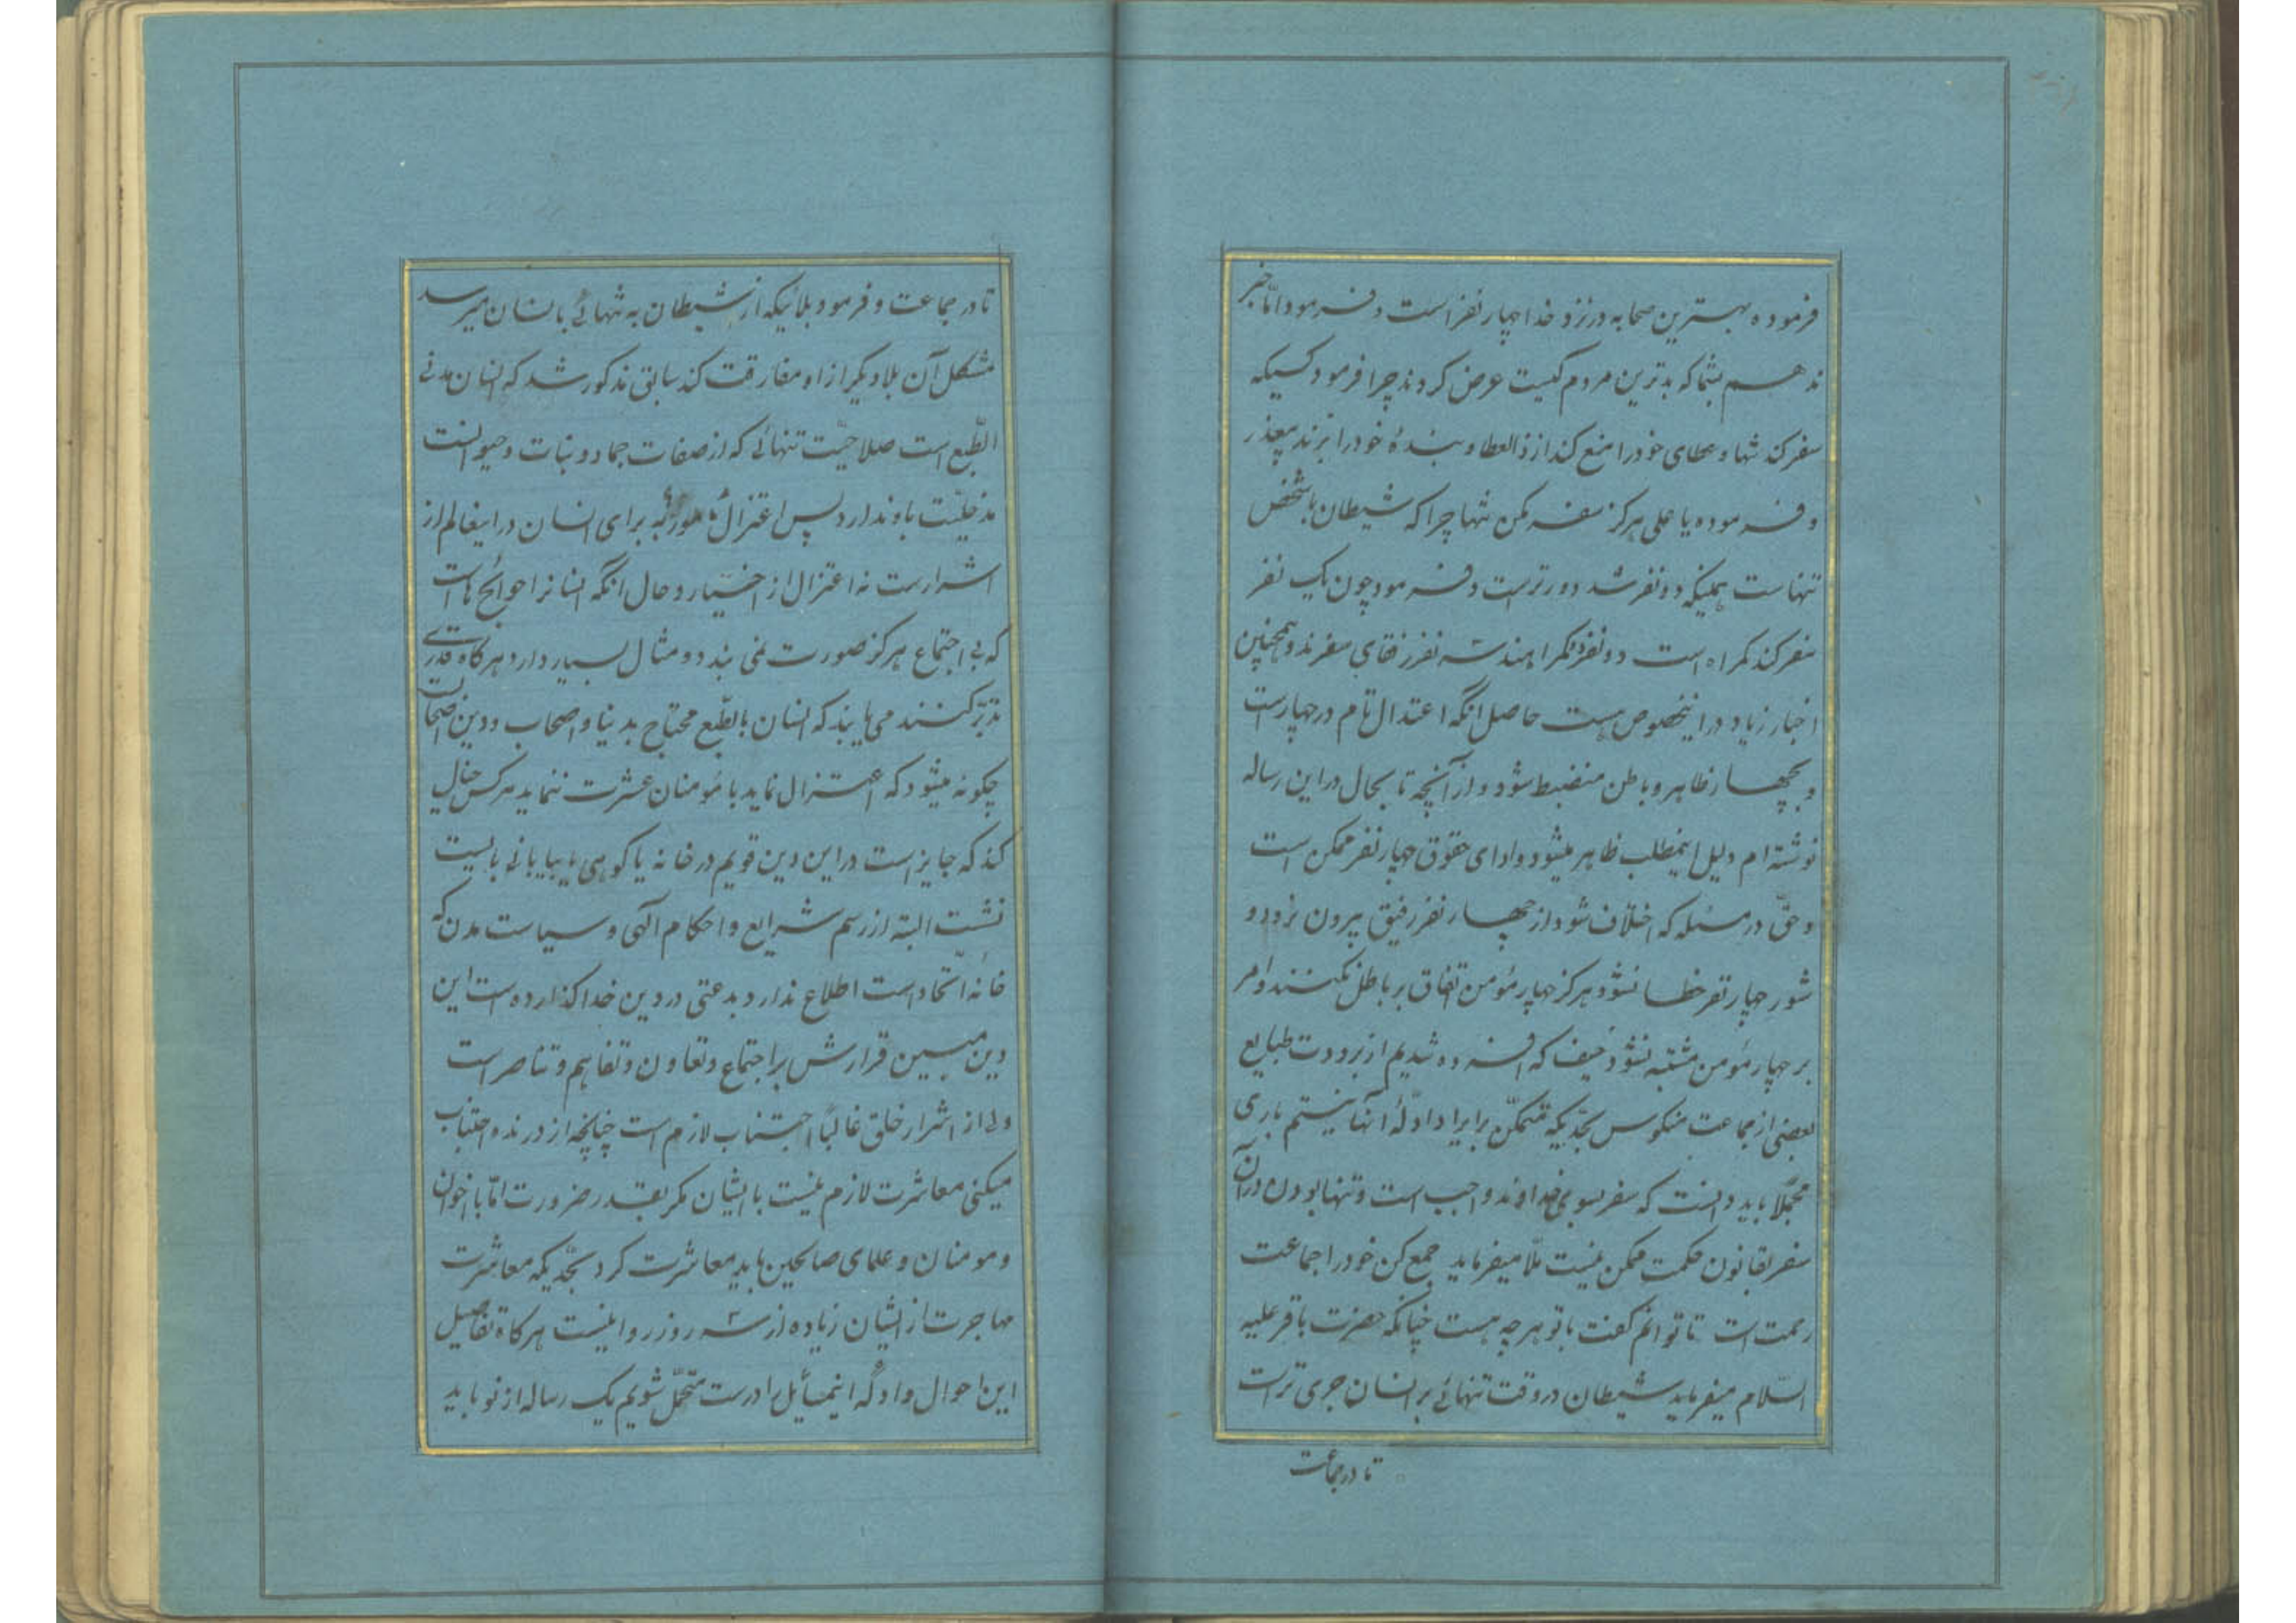 فرموده بهترین صحابه در نزد خدا چهار نفر است و فرمود اما خبر
ندهم بشما که بدترین مردم کیست عرض کردند چرا فرمود کسیکه
سفر کند تنها و عطای خود را منع کند از ذالعطا و بندهٔ خود را بزند بیعذر
و فرموده یا علی هرگز سفر مکن تنها چرا که شیطان با شخص
تنهاست همینکه دو نفر شد دورتر است و فرمود چون یک نفر
سفر کند گمراه است دو نفر گمراهند سه نفر رفقای سفرند و همچنین
اخبار زیاد در اینخصوص هست حاصل انکه اعتدال تام در چهار است
و بچهار ظاهر و باطن منضبط شود و از آنچه تا بحال در این رساله
نوشته‌ام دلیل اینمطلب ظاهر میشود و ادای حقوق چهار نفر ممکن است
و حقّ در مسئله که اختلاف شود از چهار نفر رفیق بیرون نرود و
شور چهار نفر خطا نشود هرگز چهار مؤمن اتفاق بر باطل نکنند و امر
بر چهار مؤمن مشتبه نشود حیف که افسرده شدیم از برودت طبایع
بعضی از جماعت منکوس بحدّیکه متمکن بر ایراد ادلّهٔ آنها نیستم باری
مجملًا باید دانست که سفر بسوی خداوند واجب است و تنها بودن در آن
سفر بقانون حکمت ممکن نیست ملّا میفرماید جمع کن خود را جماعت
رحمت است تا توانم گفت با تو هر چه هست چنانکه حضرت باقر علیه
السّلام میفرماید شیطان در وقت تنهائی بر انسان جری‌تر است
تا در جماعت
تا در جماعت و فرمود بلائیکه از شیطان به تنهائی بانسان میرسد
مشکل آن بلا دیگر از او مفارقت کند سابق مذکور شد که انسان مدنی
الطّبع است صلاحیّت تنهائی که از صفات جماد و نبات و حیوانست
مدخلیّت باو ندارد پس اعتزال مامور به برای انسان در اینعالم از
اشرار است نه اعتزال از اخیار و حال انکه انسانرا حوائج هاست
که بی اجتماع هرگز صورت نمی بندد و مثال بسیار دارد هرگاه قدری
تدبّر کنند می یابند که انسان بالطّبع محتاج بدنیا و اصحاب و دین اصحاب است
چگونه میشود که اعتزال نماید با مؤمنان عشرت ننماید هر کس خیال
کند که جایز است در این دین قویم در خانه یا کوهی یا بیابانی بایست
نشست البته از رسم شرایع و احکام الهی و سیاست مدن که
خانهٔ اتّحاد است اطلاع ندارد و بدعتی در دین خدا گذارده است این
دین مبین قرارش بر اجتماع و تعاون و تفاهم و تناصر است
ولی از اشرار خلق غالباً اجتناب لازم است چنانچه از درنده اجتناب
میکنی معاشرت لازم نیست با ایشان مگر بقدر ضرورت امّا با اخوان
و مومنان و علمای صالحین باید معاشرت کرد بحدّیکه معاشرت
مهاجرت از ایشان زیاده از سه روز روا نیست هرگاه تفاصیل
این احوال و ادلّه اینمسائل را درست متحمّل شویم یک رساله از نو باید